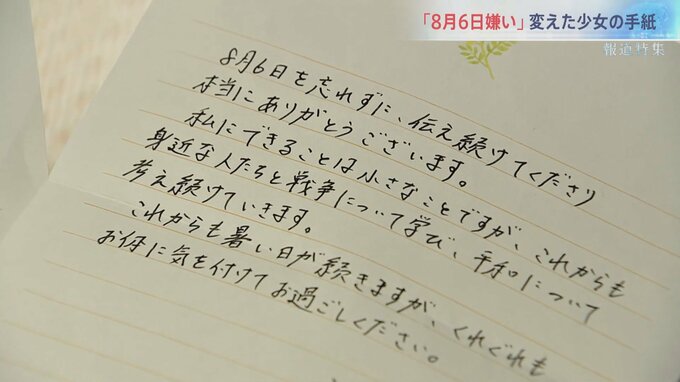 「8月6日嫌い」変えた少女の手紙
報道特集
8月6日を忘れずに、伝え続けてくださり
本当にありがとうございます。
私にできることは小さなことですが、これからも
身近な人たちと戦争について学び、平和について
考え続けていきます。
これからも暑い日が続きますが、くれぐれも
お体に気を付けてお過ごしください。